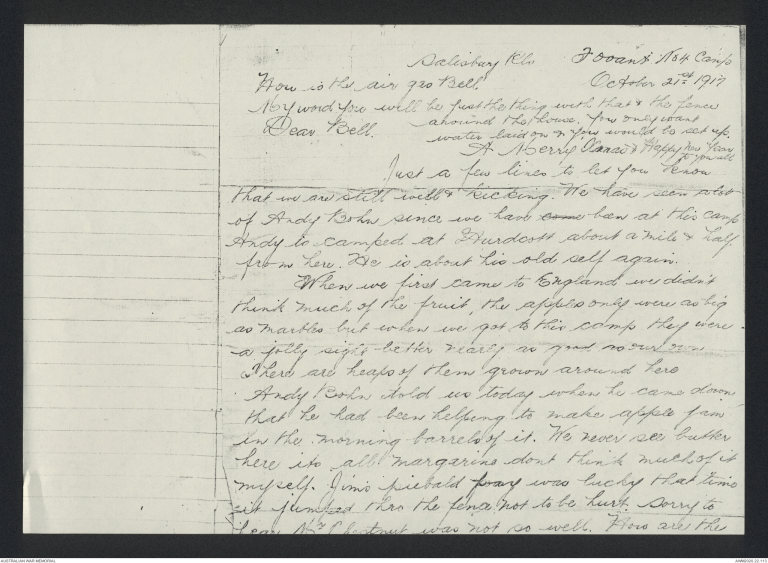 Salisbury Pln Fovant No 4 Camp
How is the air gro Bell. October 21st 1917
My word you will be just the thing with that & the fence
ahound the house. You only want
Dear Bell. water laid on & you would be set up.
A Merry Xmas & Happy New Year
to you all
Just a few lines to let you know
that we are still well & kicking. We have seen alot
of Andy Bohn since we have come been at this camp
Andy is camped at Hurdcott about a mile & half
from here. He is about his old self again.
When we first came to England we didn't
think much of the fruit, the apples only were as big
as marbles but when we got to this camp they were
a jolly sight better nearly as good as our own
There are heaps of them grown around here
Andy Bohn told us today when he came down
that he had been helping to make apple jam
in the morning barrels of it. We never see butter
here its all margarine dont think much of it
myself. Jim's piebald pony was lucky that time
it jumped thro the fence not to be hurt. Sorry to
hear Mrs Chestnut was not so well. How are the
AUSTRALIAN WAR MEMORIAL